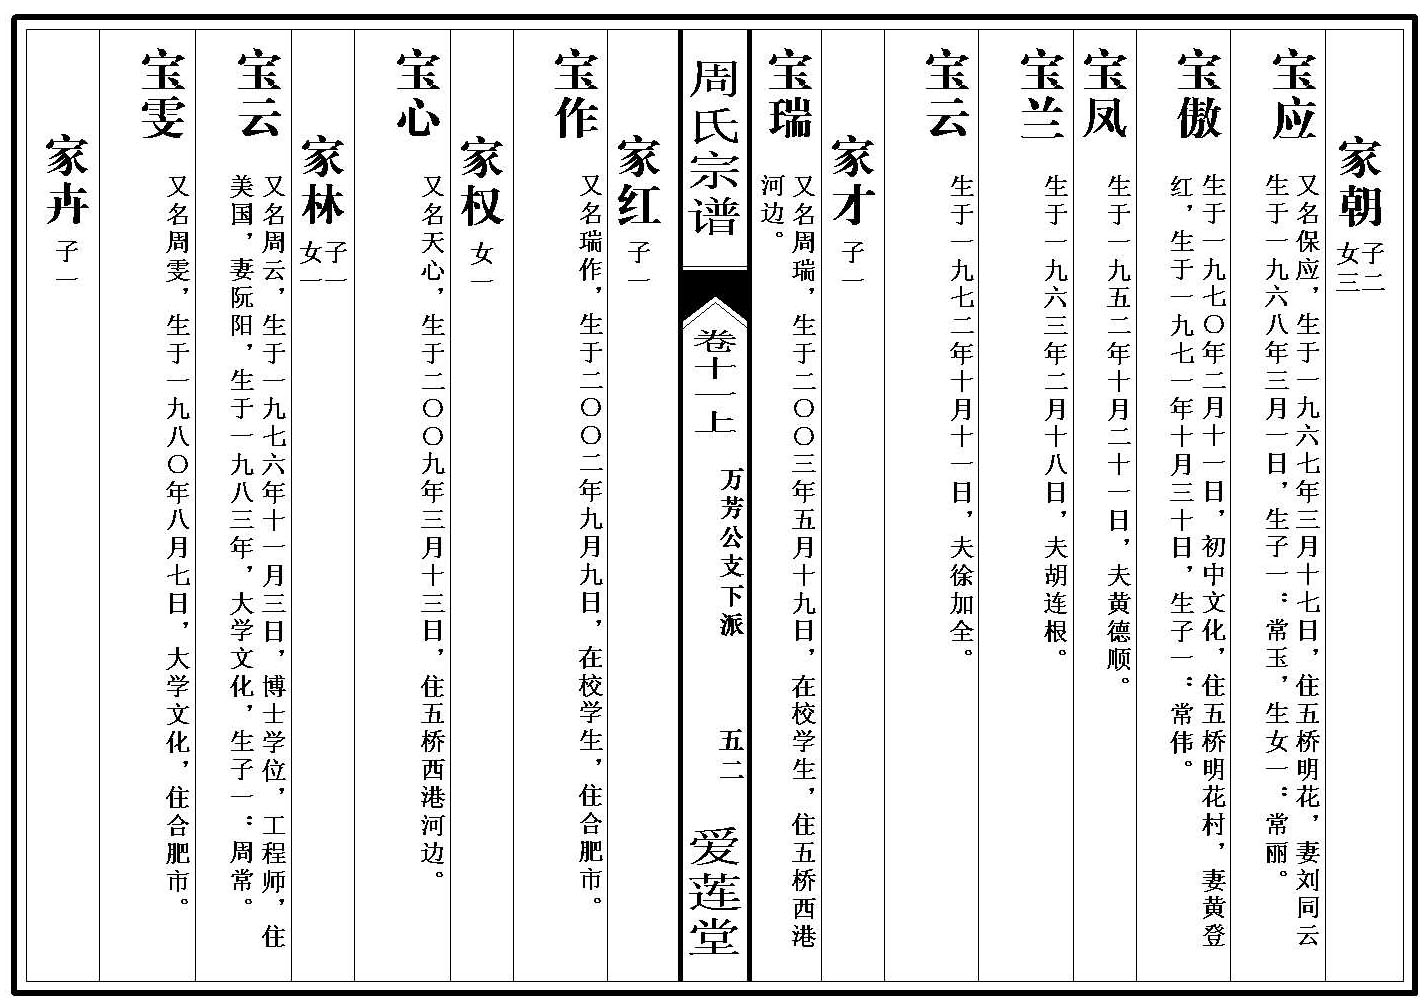 家朝 子二
女三
宝应 又名保应，生于一九六七年三月十七日，住五桥明花，妻刘同云
生于一九六八年三月一日，生子一：常玉，生女一：常丽。
宝傲 生于一九七〇年二月十一日，初中文化，住五桥明花村，妻黄登
红，生于一九七一年十月三十日，生子一：常伟。
宝凤 生于一九五二年十月二十一日，夫黄德顺。
宝兰 生于一九六三年二月十八日，夫胡连根。
宝云 生于一九七二年十月十一日，夫徐加全。
家才 子一
宝瑞 又名周瑞，生于二〇〇三年五月十九日，在校学生，住五桥西港
河边。
周氏宗谱 卷十一上 万芳公支下派 五二 爱莲堂
家红 子一
宝作 又名瑞作，生于二〇〇二年九月九日，在校学生，住合肥市。
家权 女一
宝心 又名天心，生于二〇〇九年三月十三日，住五桥西港河边。
家林 子一
女一
宝云 又名周云，生于一九七六年十一月三日，博士学位，工程师，住
美国，妻阮阳，生于一九八三年，大学文化，生子一：周常。
宝雯 又名周雯，生于一九八〇年八月七日，大学文化，住合肥市。
家卉 子一